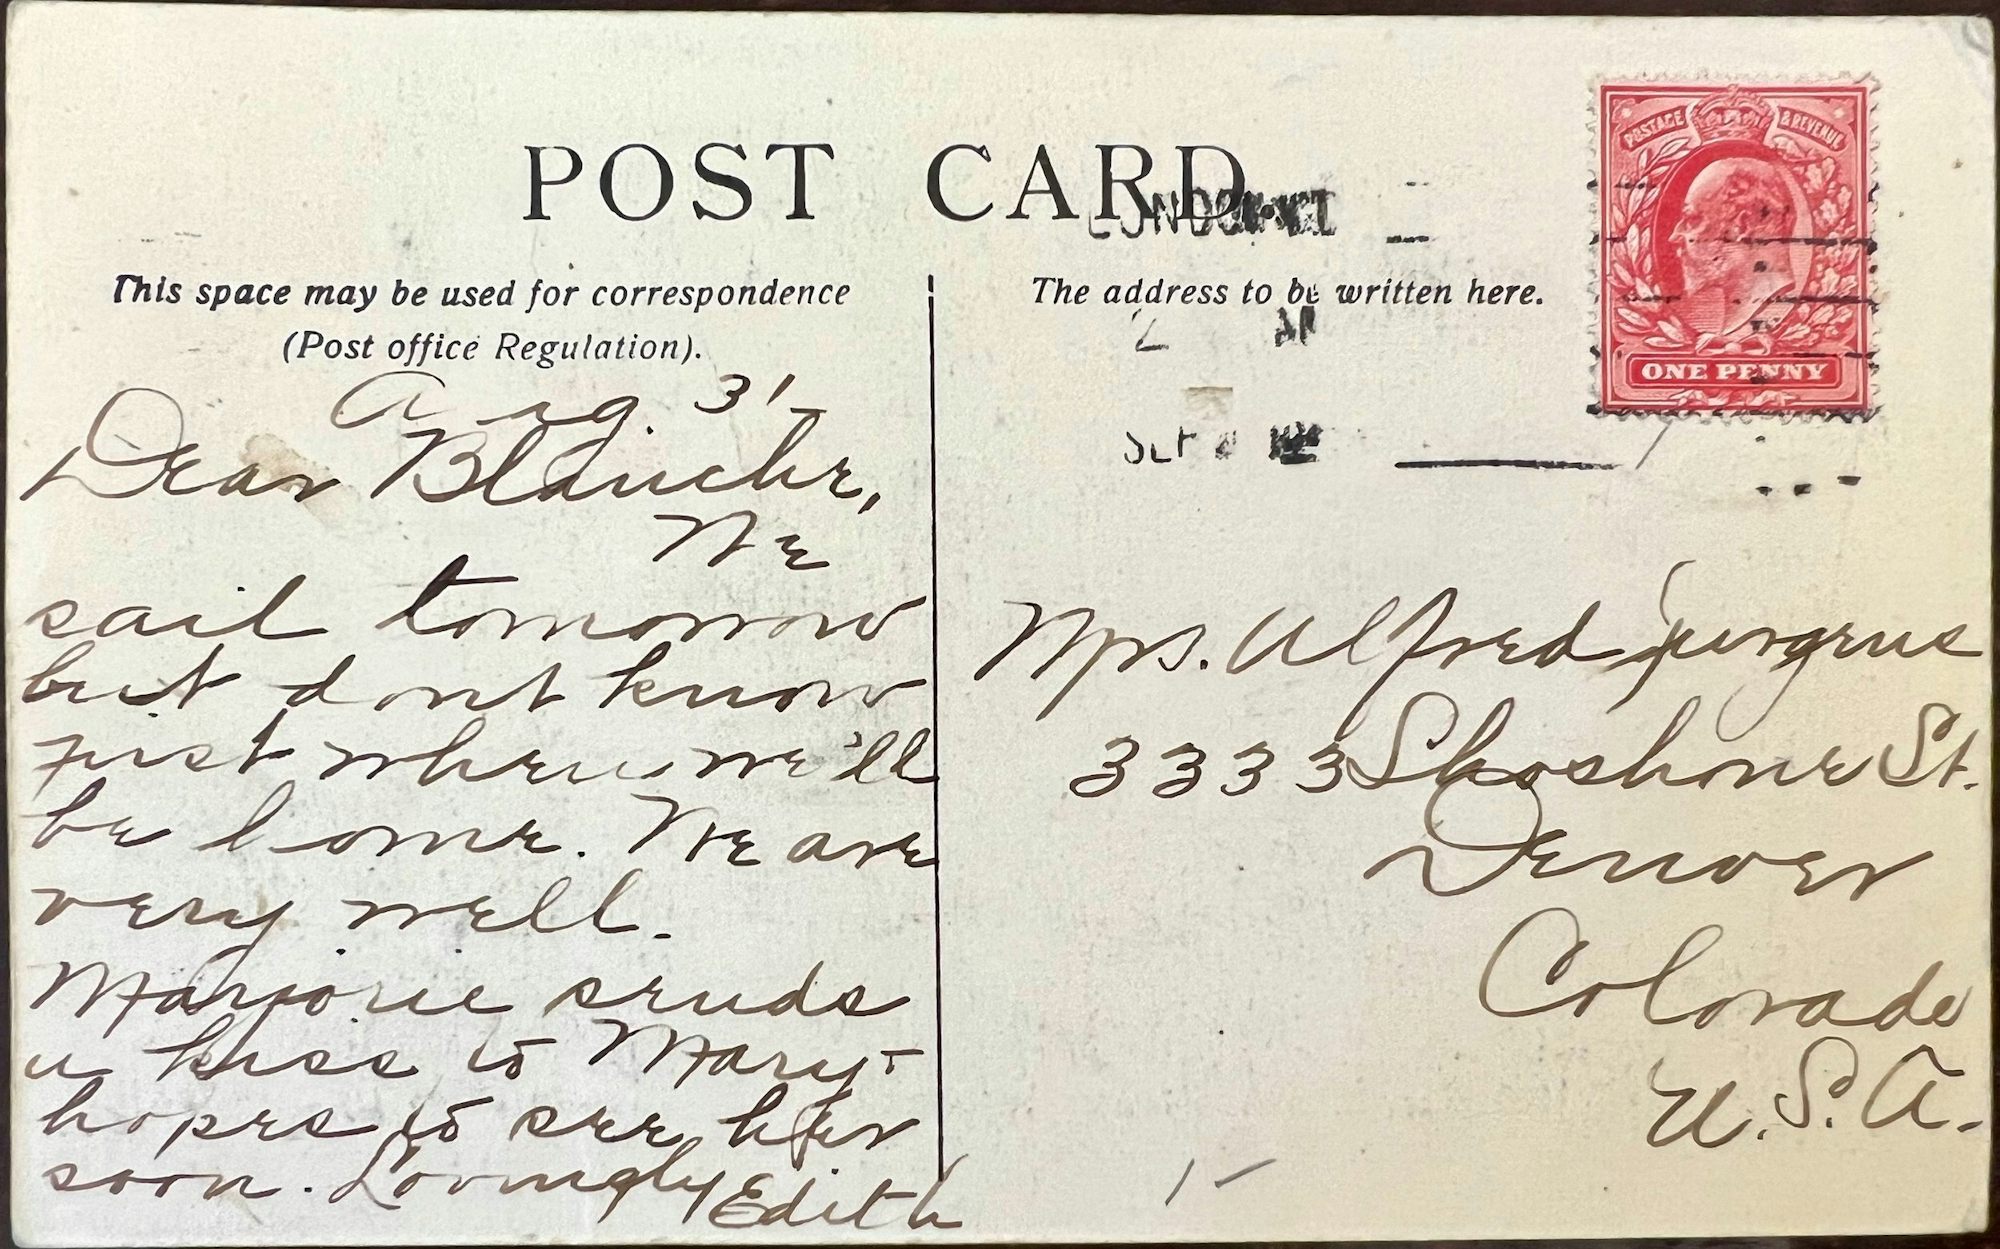 POST CARD
This space may be used for correspondence
(Post office Regulation).
The address to be written here.
POSTAGE & REVENUE
ONE PENNY
LONDON
2 AM
SEP 2
Aug. 31
Dear Blanche,
We
sail tomorrow
but dont know
just when we'll
be home. We are
very well.
Marjorie sends
a kiss to Mary-
hopes to see her
soon. Lovingly
Edith
Mrs. Alfred
3333 Shoshone St.
Denver
Colorado
U.S.A.